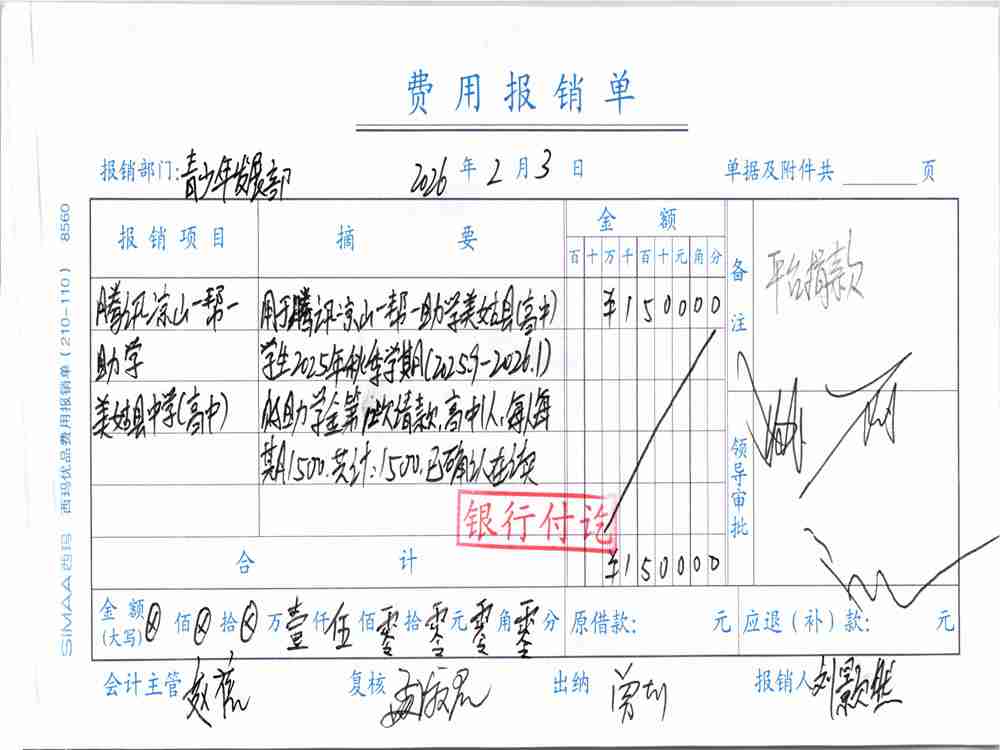 费用报销单
报销部门:青少年发展部 2026年2月3日 单据及附件共 页
报销项目 摘要 金额 备注
百十万千百十元角分
平台捐款
腾讯凉山一帮一 用于腾讯凉山一帮一助学美姑县(高中) ¥150000
助学 学生2025年秋季学期(2025.9-2026.1)
美姑县中学(高中) 的助学金第 次 款,高中1人,每人每
期1500.共计:1500.已确认在读
领导审批
银行付讫
合计 ¥150000
金额(大写)⊗佰⊗拾⊗万壹仟伍佰零拾零元零角零分 原借款: 元 应退(补)款: 元
会计主管 复核 出纳 曾 报销人 刘颢然
SIMAA 西玛 西玛优品费用报销单(210-110) 8560